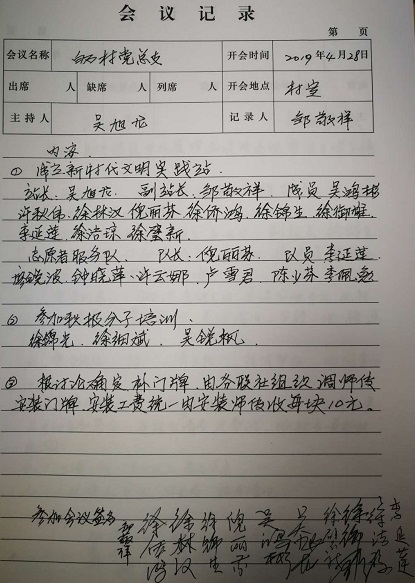 会 议 记 录
第 页
会议名称 村党总支 开会时间 2019年4月28日
出席 人 缺席 人 列席 人 开会地点 村室
主持人 吴旭龙 记录人 邹敬祥
内容
① 成立新时代文明实践站
站长：吴旭龙 副站长：邹敬祥 成员 吴鸿彬
许秋伟 徐林汉 倪丽芬 徐侨鸿 徐锦生 徐御雄
李延莲 徐洁琼 徐莹新
志愿者服务队 队长：倪丽芬 队员 李延莲
钟晓萍 许云娜 卢雪君 陈业芬 李佩
② 参加积极分子培训
徐锦光 徐细斌 吴锐枫
③ 经讨论确定补门牌，由各联社组织调师傅
安装门牌，安装工费统一由安装师傅收每块10元。
参加会议签名 邹敬祥 徐侨鸿 徐林汉 倪丽芬 李延莲